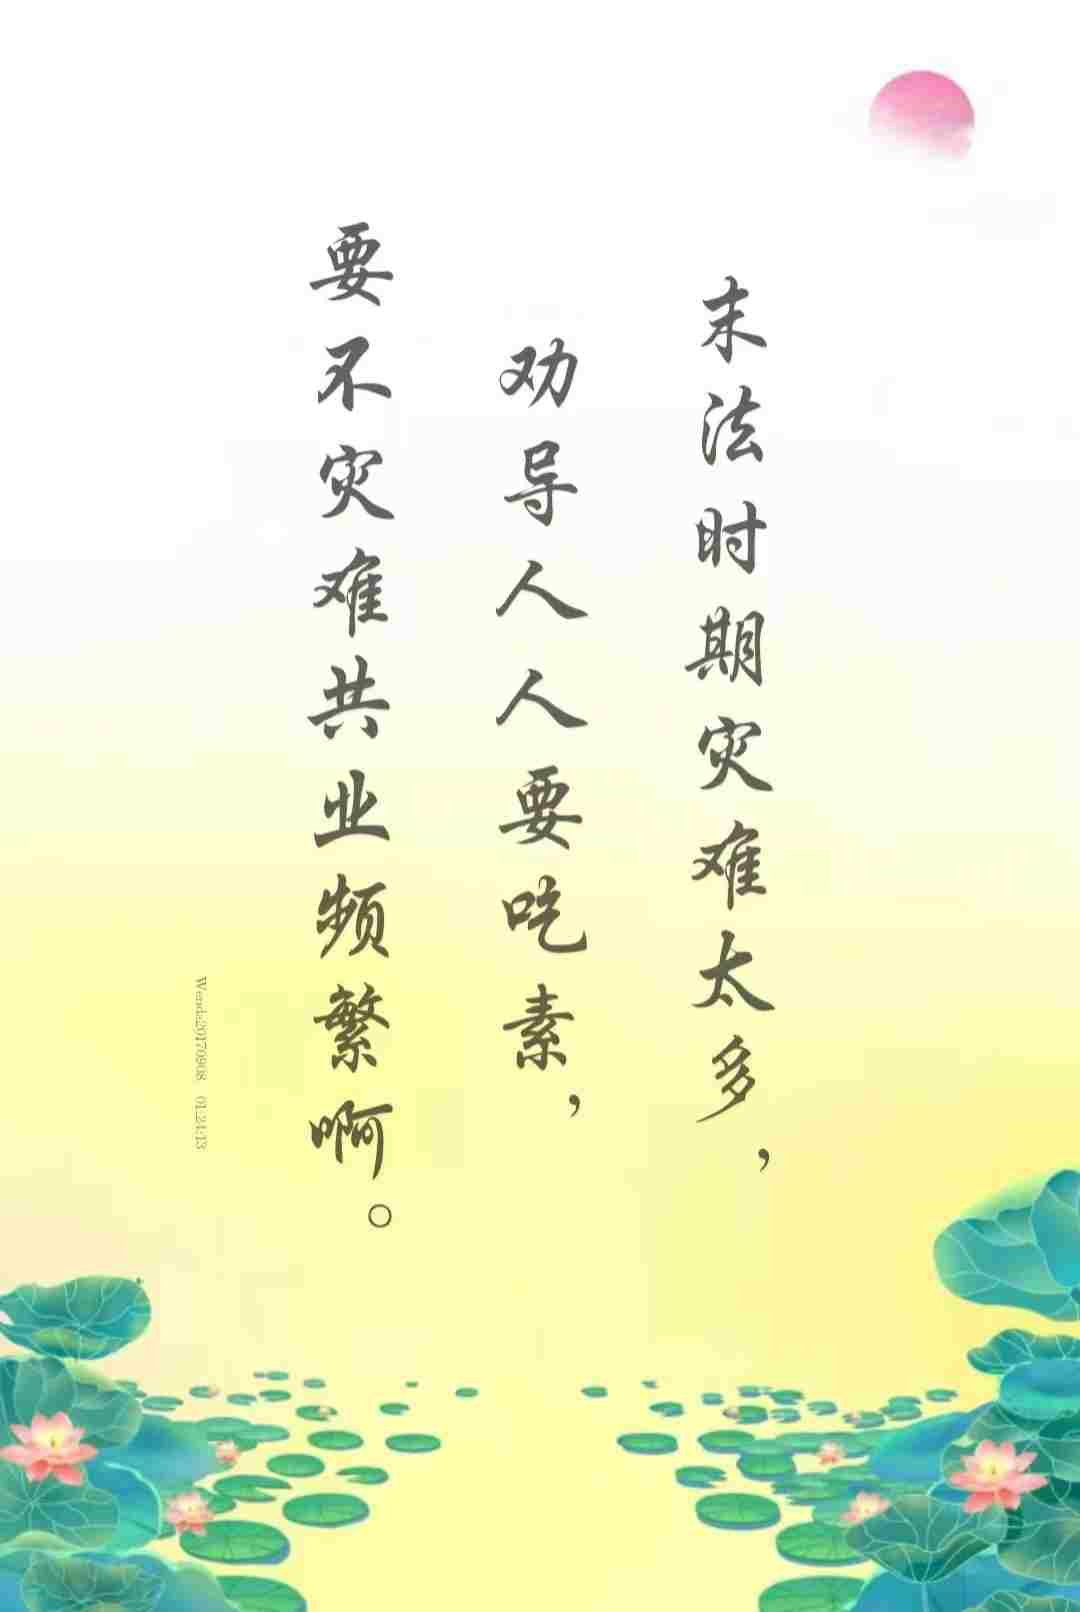 末法时期灾难太多，
劝导人人要吃素，
要不灾难共业频繁啊。
Wenda20170908 01:24:13